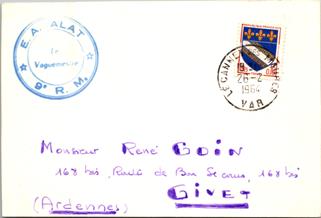 E.A. ALAT
Le
Vaguemestre
9e R.M.
LE CANNET
26-2
1964
VAR
Monsieur René GOIN
168 bis, Route de Bon Secours, 168 bis
GIVET
(Ardennes)